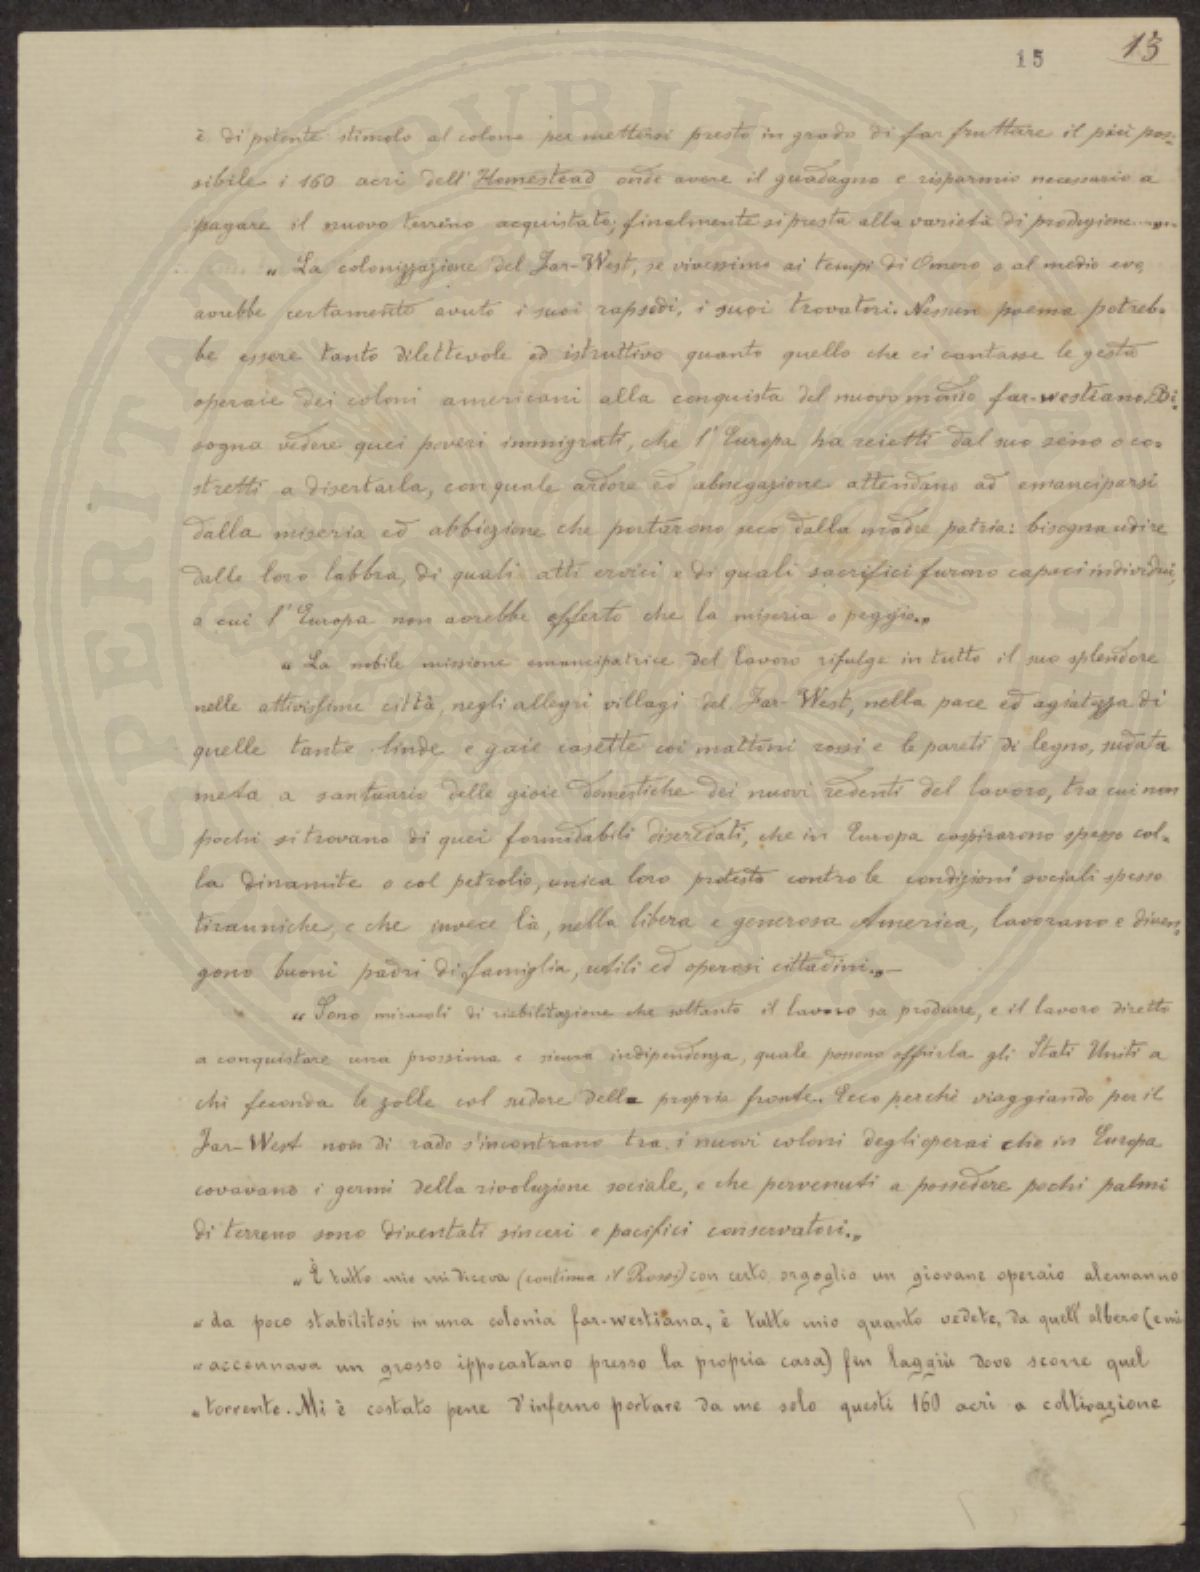 15 15
è di potente stimolo al colono per mettersi presto in grado di far fruttare il più pos-
sibile i 160 acri dell'Homestead onde avere il guadagno e risparmio necessario a
pagare il nuovo terreno acquistato; finalmente si presta alla varietà di produzione
„ La colonizzazione del Far-West, se vivessimo ai tempi di Omero o al medio evo,
avrebbe certamente avuto i suoi rapsodi, i suoi trovatori. Nessun poema potreb-
be essere tanto dilettevole ed istruttivo quanto quello che ci cantasse le gesta
operaie dei coloni americani alla conquista del nuovo mondo far-westiano. Bi-
sogna vedere quei poveri immigrati, che l'Europa ha reietti dal suo seno o co-
stretti a disertarla, con quale ardore ed abnegazione attendano ad emanciparsi
dalla miseria ed abbiezione che portarono seco dalla madre patria: bisogna udire
dalle loro labbra, di quali atti eroici e di quali sacrifici furono capaci individui,
a cui l'Europa non avrebbe offerto che la miseria o peggio.„
„ La nobile missione emancipatrice del lavoro rifulge in tutto il suo splendore
nelle attivissime città, negli allegri villagi del Far-West, nella pace ed agiatezza di
quelle tante linde e gaie casette coi mattoni rossi e le pareti di legno, sudata
meta a santuario delle gioie domestiche dei nuovi redenti del lavoro, tra cui non
pochi si trovano di quei formidabili diseredati, che in Europa cospirarono spesso col-
la dinamite o col petrolio, unica loro protesta contro le condizioni sociali spesso
tiranniche, e che invece là, nella libera e generosa America, lavorano e diven-
gono buoni padri di famiglia, utili ed operosi cittadini.„—
„ Sono miracoli di riabilitazione che soltanto il lavoro sa produrre, e il lavoro diretto
a conquistare una prossima e sicura indipendenza, quale possono offrirla gli Stati Uniti a
chi feconda le zolle col sudore della propria fronte. Ecco perchè viaggiando per il
Far-West non di rado s'incontrano tra i nuovi coloni degli operai che in Europa
covavano i germi della rivoluzione sociale, e che pervenuti a possedere pochi palmi
di terreno sono diventati sinceri e pacifici conservatori.„
„ È tutto mio mi diceva (continua il Rossi) con certo orgoglio un giovane operaio alemanno
„ da poco stabilitosi in una colonia far-westiana, è tutto mio quanto vedete, da quell'albero (e mi
„ accennava un grosso ippocastano presso la propria casa) fin laggiù dove scorre quel
„ torrente. Mi è costato pene d'inferno portare da me solo questi 160 acri a coltivazione